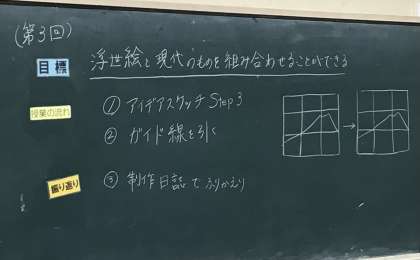 (第3回)
目標 浮世絵と現代のものを組み合わせることができる
授業の流れ ① アイデアスケッチ Step 3
② ガイド線を引く
振り返り ③ 制作日誌でふりかえり